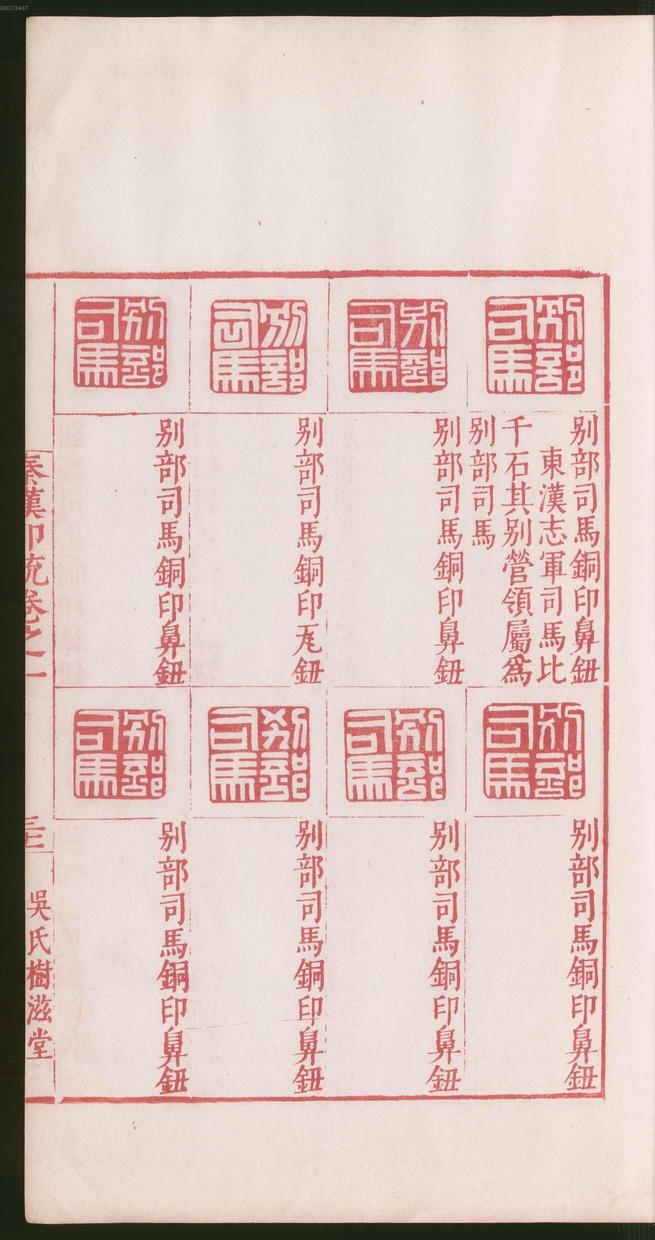 00073487
别部
司馬
别部司馬銅印鼻鈕
東漢志軍司馬比
千石其别營領屬爲
别部司馬
别部
司馬
别部司馬銅印鼻鈕
别部
司馬
别部司馬銅印瓦鈕
别部
司馬
别部司馬銅印鼻鈕
别部
司馬
别部司馬銅印鼻鈕
别部
司馬
别部司馬銅印鼻鈕
别部
司馬
别部司馬銅印鼻鈕
别部
司馬
别部司馬銅印鼻鈕
秦漢印統卷之一
吳氏樹滋堂